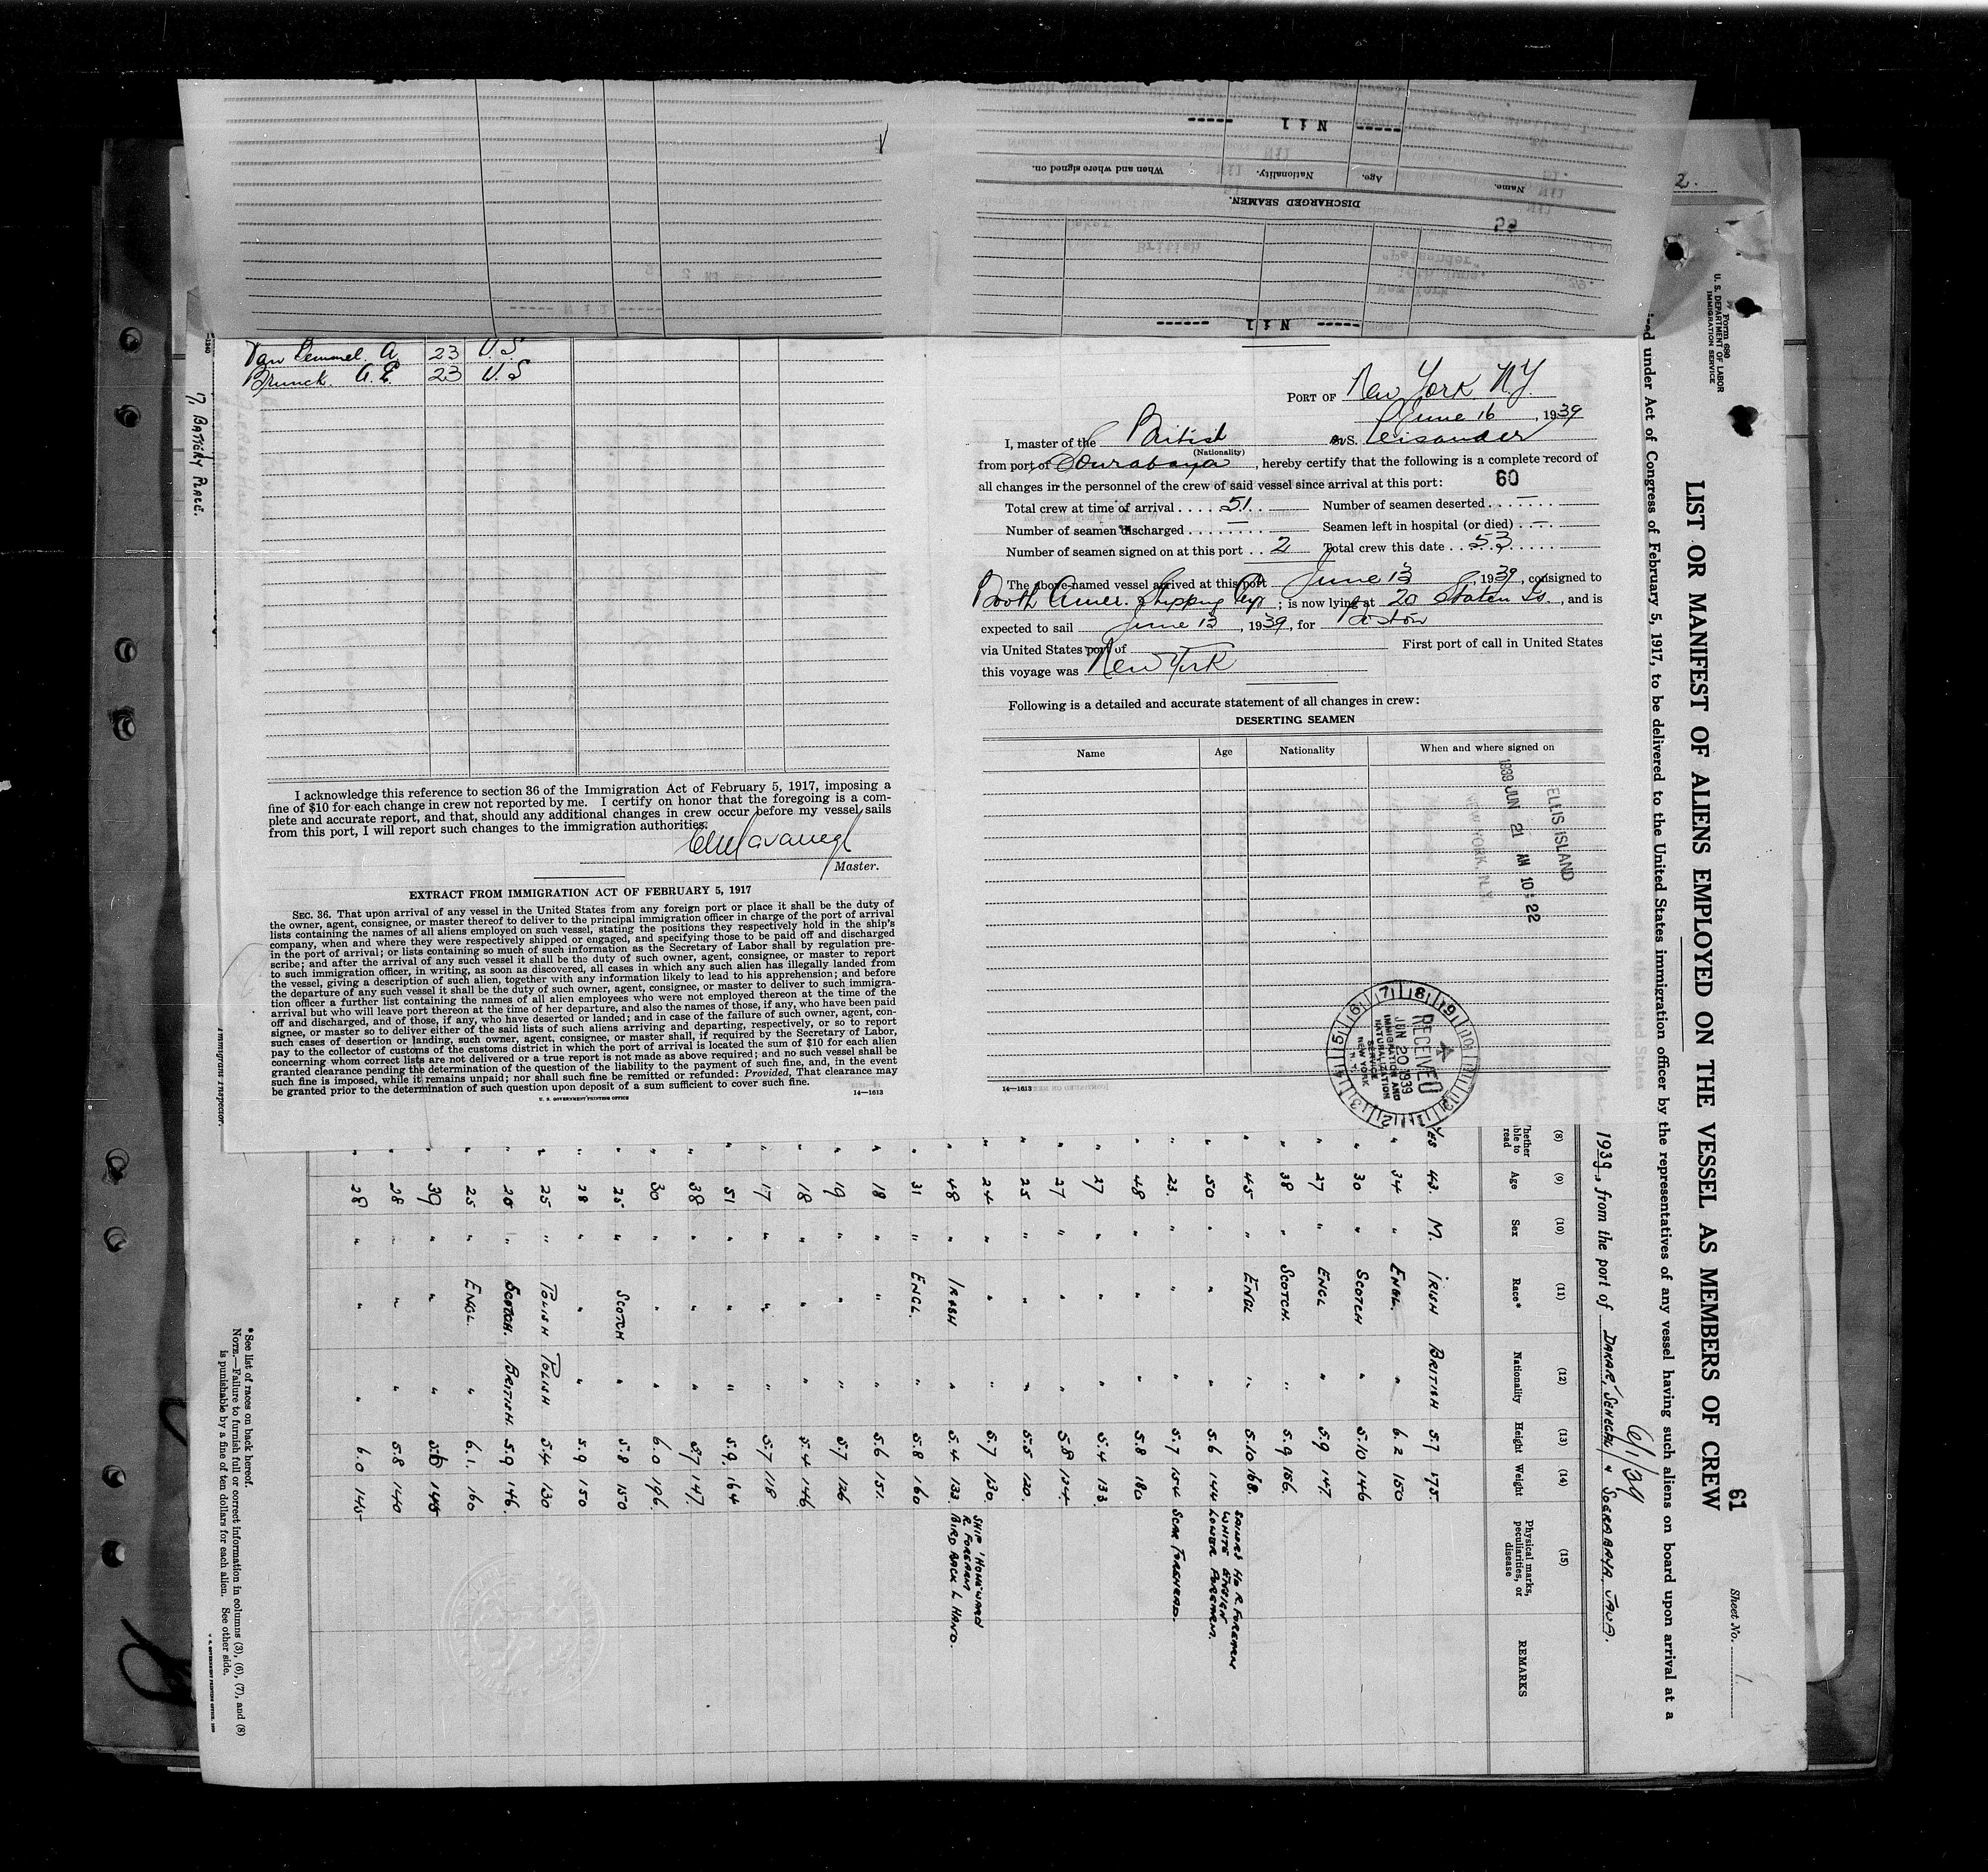 Nil
When and where signed on.
Nationality.
Age.
Name.
DISCHARGED SEAMEN.
British
Nil
2.
A. 23 U.S
Brunck A.E. 23 U.S
17, BATTERY PLACE.
I acknowledge this reference to section 36 of the Immigration Act of February 5, 1917, imposing a
fine of $10 for each change in crew not reported by me. I certify on honor that the foregoing is a com-
plete and accurate report, and that, should any additional changes in crew occur before my vessel sails
from this port, I will report such changes to the immigration authorities.
Master.
EXTRACT FROM IMMIGRATION ACT OF FEBRUARY 5, 1917
SEC. 36. That upon arrival of any vessel in the United States from any foreign port or place it shall be the duty of
the owner, agent, consignee, or master thereof to deliver to the principal immigration officer in charge of the port of arrival
lists containing the names of all aliens employed on such vessel, stating the positions they respectively hold in the ship's
company, when and where they were respectively shipped or engaged, and specifying those to be paid off and discharged
in the port of arrival; or lists containing so much of such information as the Secretary of Labor shall by regulation pre-
scribe; and after the arrival of any such vessel it shall be the duty of such owner, agent, consignee, or master to report
to such immigration officer, in writing, as soon as discovered, all cases in which any such alien has illegally landed from
the vessel, giving a description of such alien, together with any information likely to lead to his apprehension; and before
the departure of any such vessel it shall be the duty of such owner, agent, consignee, or master to deliver to such immigra-
tion officer a further list containing the names of all alien employees who were not employed thereon at the time of the
arrival but who will leave port thereon at the time of her departure, and also the names of those, if any, who have been paid
off and discharged, and of those, if any, who have deserted or landed; and in case of the failure of such owner, agent, con-
signee, or master so to deliver either of the said lists of such aliens arriving and departing, respectively, or so to report
such cases of desertion or landing, such owner, agent, consignee, or master shall, if required by the Secretary of Labor,
pay to the collector of customs of the customs district in which the port of arrival is located the sum of $10 for each alien
concerning whom correct lists are not delivered or a true report is not made as above required; and no such vessel shall be
granted clearance pending the determination of the question of the liability to the payment of such fine, and, in the event
such fine is imposed, while it remains unpaid; nor shall such fine be remitted or refunded: Provided, That clearance may
be granted prior to the determination of such question upon deposit of a sum sufficient to cover such fine.
U. S. GOVERNMENT PRINTING OFFICE 14—1613
Immigrant Inspector.
PORT OF New York N.Y.
June 16, 1939
I, master of the British S. Peisander
(Nationality)
from port of Sourabaya, hereby certify that the following is a complete record of
all changes in the personnel of the crew of said vessel since arrival at this port: 60
Total crew at time of arrival .... 51 Number of seamen deserted .. —
Number of seamen discharged ........ — Seamen left in hospital (or died) .. —
Number of seamen signed on at this port .. 2 Total crew this date .. 53
The above-named vessel arrived at this port June 13, 1939, consigned to
Booth Amer. Shipping Corp; is now lying at 20 Staten Is., and is
expected to sail June 13, 1939, for Boston
via United States port of — First port of call in United States
this voyage was New York
Following is a detailed and accurate statement of all changes in crew:
DESERTING SEAMEN
Name Age Nationality When and where signed on
ELLIS ISLAND
1939 JUN 21 AM 10:22
NEW YORK, N.Y.
RECEIVED
JUN 20 1939
IMMIGRATION AND
NATURALIZATION
SERVICE
NEW YORK
N. Y.
14—1613
Form 680
U. S. DEPARTMENT OF LABOR
IMMIGRATION SERVICE
Sheet No. 1
61
LIST OR MANIFEST OF ALIENS EMPLOYED ON THE VESSEL AS MEMBERS OF CREW
under Act of Congress of February 5, 1917, to be delivered to the United States immigration officer by the representatives of any vessel having such aliens on board upon arrival at a
6/1/39
1939, from the port of DAKAR, SENEGAL & SOERABAYA, JAVA.
(8) (9) (10) (11) (12) (13) (14) (15)
Whether able to read Age Sex Race* Nationality Height Weight Physical marks, peculiarities, or disease REMARKS
YES 43. M. IRISH BRITISH 5.7 175.
" 34 " ENGL. " 6.2 150
" 30 " SCOTCH " 5.10 146
" 27 " ENGL " 5.9 147
" 38 " SCOTCH. " 5.9 156.
" 45 " ENGL " 5.10 168. SAILORS HD R. FOREARM
" 50 " " " 5.6 144 WHITE ENSIGN LOWER FOREARM.
" 23. " " " 5.7 154 SCAR FOREHEAD.
" 48 " " " 5.8 180
" 27 " " " 5.4 133
" 27 " " " 5.8 134
" 25 " " " 5.5 120.
" 24 " " " 5.7 130 SHIP 'HOMEWARD R. FOREARM
" 48 " IRISH " 5.4 133. BIRD BACK L HAND.
" 31 " ENGL. " 5.8 160
" 18 " " " 5.6 151.
" 19 " " " 5.7 126
" 18 " " " 5.4 146
" 17 " " " 5.7 118
" 51 " " " 5.9. 164
" 38 " " " 5.7 147.
" 30 " " " 6.0 196.
" 25 " SCOTCH " 5.8 150
" 28 " " " 5.9 150
" 25 " POLISH POLISH 5.4 130
" 26 " SCOTCH. BRITISH. 5.9 146.
" 25 " ENGL. " 6.1. 160
" 39 " " " 145
" 28 " " " 5.8 140
" 28 " " " 6.0 145
*See list of races on back hereof.
NOTE.—Failure to furnish full or correct information in columns (3), (6), (7), and (8)
is punishable by a fine of ten dollars for each alien. See other side.